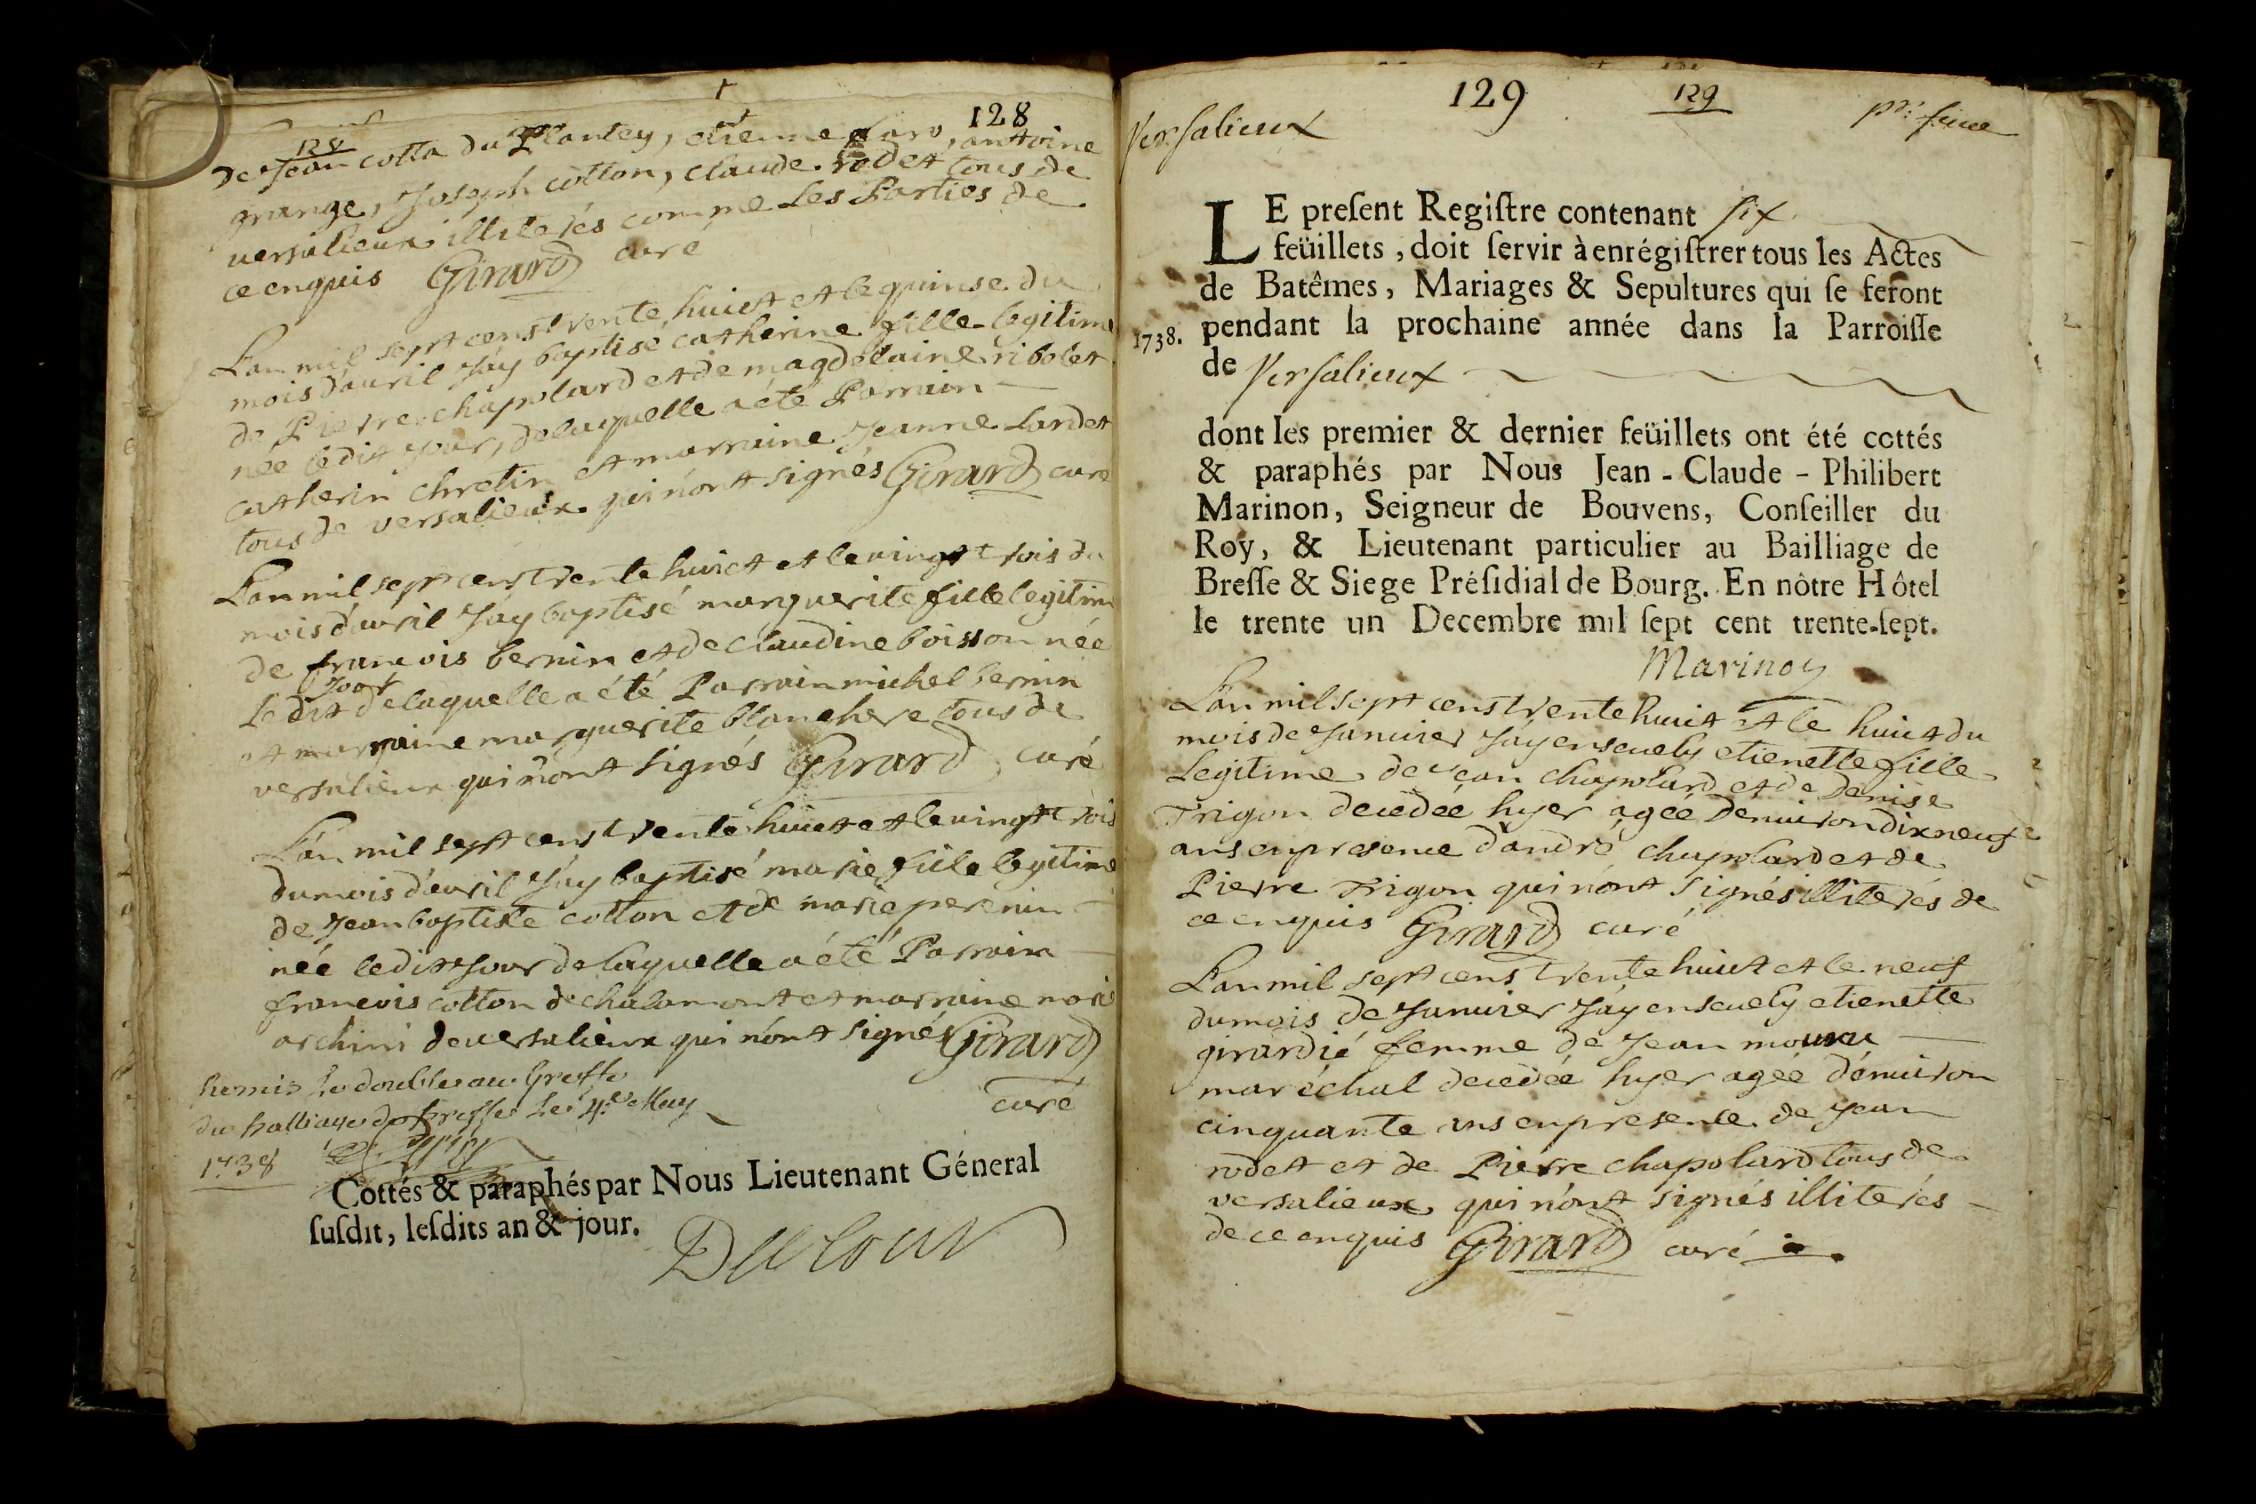 128
128
de Jean cotta du Plantey, etienne faro, antoine
grange, Joseph cotton, claude rodet tous de
versalieux illiterés comme Les Parties de
ce enquis Girard curé
L'an mil sept cens trente huict et le quinse du
mois d'auril J'ay baptisé catherine fille legitime
de Pierre chapolard et de magdelaine ribolet
née ledit jour, de laquelle a été Parrain
catherin chretin et marraine Jeanne Lardet
tous de versalieux qui n'ont signés Girard curé
L'an mil sept cens trente huict et le vingt trois du
mois d'auril J'ay baptisé marguerite fille legitime
de francois bernin et de claudine boisson née
Le dit jour de laquelle a été Parrain michel bernin
et marraine marguerite blanchere tous de
versalieux qui n'ont signés Girard, curé
L'an mil sept cens trente huict et le vingt trois
du mois d'auril J'ay baptisé marie fille legitime
de Jean baptiste cotton et de marie perenin
née ledit Jour de laquelle a été Parrain
francois cotton de chalamont et marraine marie
archini de versalieux qui n'ont signés Girard
curé
Remis le double au Greffe
du balliage de bresse Le 4.e May
1738
Cottés & paraphés par Nous Lieutenant Géneral
ſuſdit, leſdits an & jour.
129
129
Versalieux
LE preſent Regiſtre contenant six
feüillets, doit ſervir à enrégiſtrer tous les Actes
de Batêmes, Mariages & Sepultures qui ſe feront
1738. pendant la prochaine année dans la Parroiſſe
de Versalieux
dont les premier & dernier feüillets ont été cottés
& paraphés par Nous Jean - Claude - Philibert
Marinon, Seigneur de Bouvens, Conſeiller du
Roy, & Lieutenant particulier au Bailliage de
Breſſe & Siege Préſidial de Bourg. En nôtre Hôtel
le trente un Decembre mil ſept cent trente-ſept.
Marinon
L'an mil sept cens trente huict et le huict du
mois de Januier J'ay enseuely etienette fille
Legitime de Jean chapolard et de Denise
Trigon decedée hyer agée d'enuiron dix neuf
ans en presence d'andré chapolard et de
Pierre Trigon qui n'ont signés illiterés de
ce enquis Girard curé
L'an mil sept cens trente huict et le neuf
du mois de Januier J'ay enseuely etienette
girardié femme de Jean mouru
maréchal decedée hyer agée d'enuiron
cinquante ans en presence de Jean
rodet et de Pierre chapolard tous de
versalieux qui n'ont signés illiterés
de ce enquis Girard curé